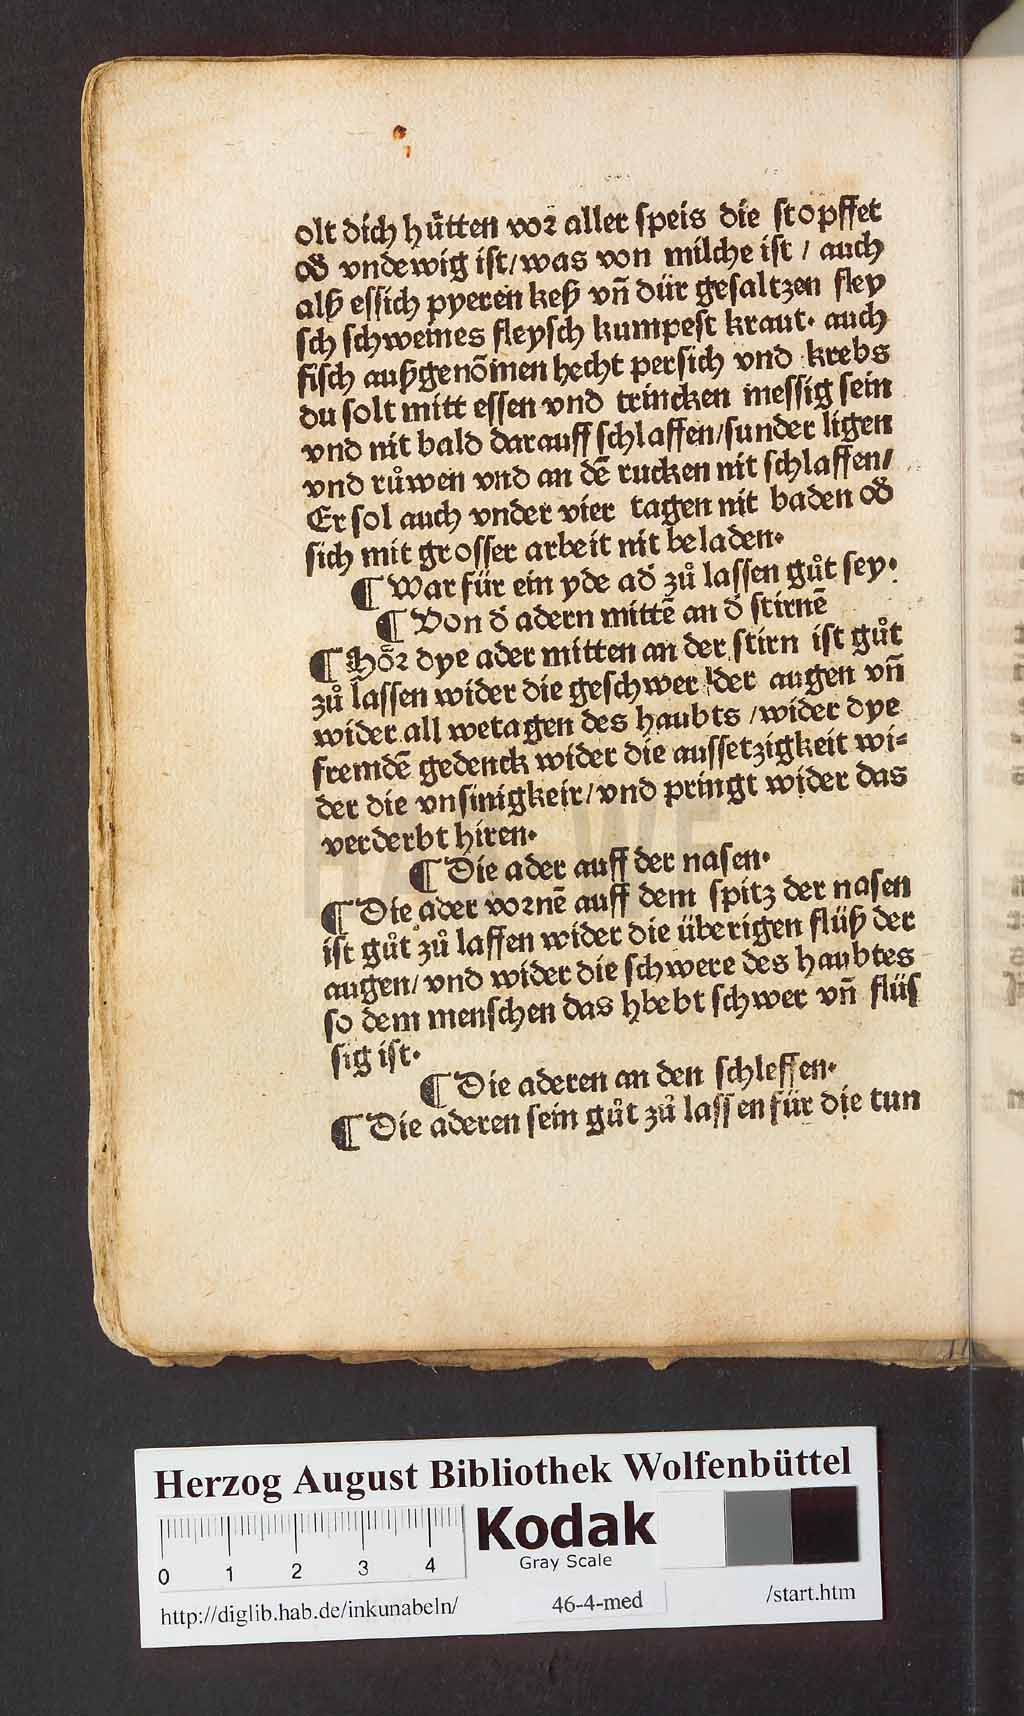 olt dich hütten vor aller speis die stopffet
od̕ vndewig ist/was von milche ist / auch
alß essich pyeren keß vn̄ dür gesaltzen fley
sch schweines fleysch kumpest kraut. auch
fisch außgenōmen hecht persich vnd krebs
du solt mitt essen vnd trincken messig sein
vnd nit bald darauff schlaffen/sunder ligen
vnd růwen vnd an dē rucken nit schlaffen/
Er sol auch vnder vier tagen nit baden od̕
sich mit grosser arbeit nit beladen.
¶ War für ein yde ad̕ zů lassen gůt sey.
¶ Von d̕ adern mittē an d̕ stirnē
¶ Hör dye ader mitten an der stirn ist gůt
zů lassen wider die geschwer der augen vn̄
wider all wetagen des haubts /wider dye
fremdē gedenck wider die aussetzigkeit wi=
der die vnsinigkeir/vnd pringt wider das
verderbt hiren.
¶ Die ader auff der nasen.
¶ Die ader vornē auff dem spitz der nasen
ist gůt zů lassen wider die überigen flüß der
augen/ vnd wider die schwere des haubtes
so dem menschen das hbebt schwer vn̄ flüs
sig ist.
¶ Die aderen an den schleffen.
¶ Die aderen sein gůt zů lassen für die tun
Herzog August Bibliothek Wolfenbüttel
Kodak
Gray Scale
0 1 2 3 4
http://diglib.hab.de/inkunabeln/ 46-4-med /start.htm